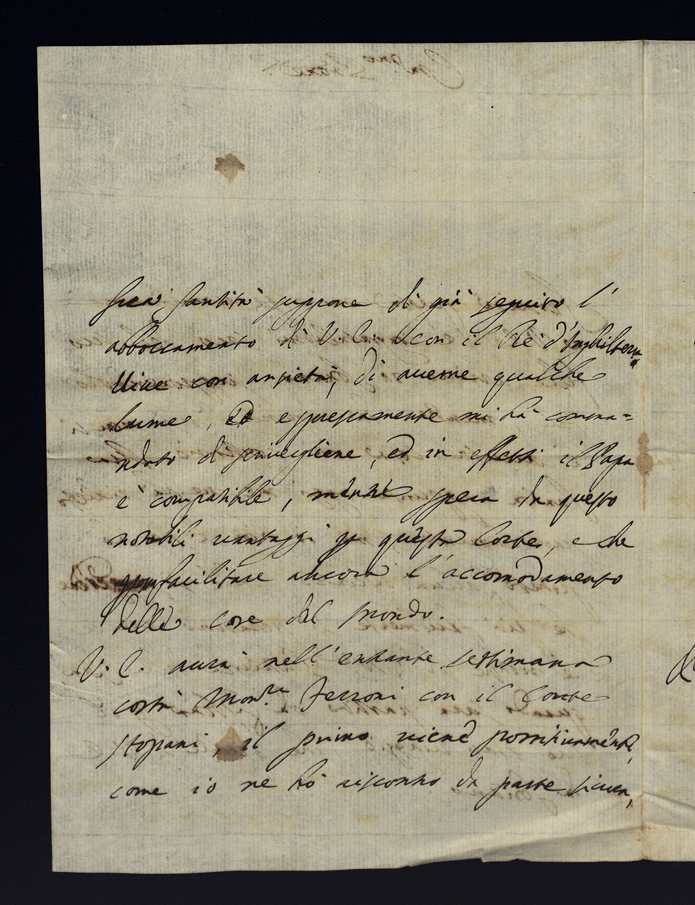 Sua Santità suppone di già seguito l'
abboccamento di V. E. con il Rè d'Inghilterra
Vive con ansietà, di averne qualche
lume, ed espressamente mi hà comma=
ndato di scrivegliene, ed in effetti il Papa
e' compatibile, mentre spera da questo
notabili vantaggi p questa Corte, e che
facilitare ancora l'accomodamento
delle cose del Mondo.
V. E. avrà nell'entrante settimana
costì Mons.re Ferroni con il Conte
Stopani, il primo viene
come io ne hò riscontro da parte sicura,